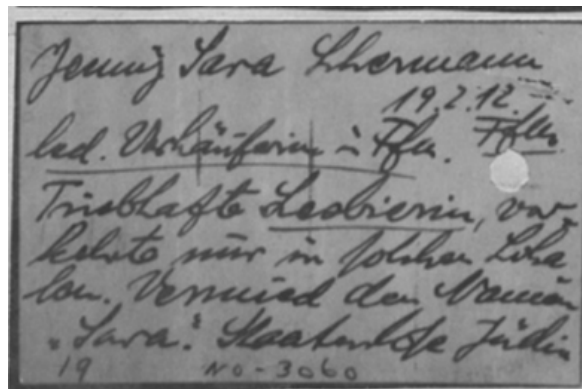 Jenny Sara Schermann
19.2.12. Ffm.
led. Verkäuferin in Ffm.
Triebhafte Lesbierin, ver-
kehrte nur in solchen Loka-
len. Vermied den Namen
"Sara". Staatenlose Jüdin
19 NO-3060